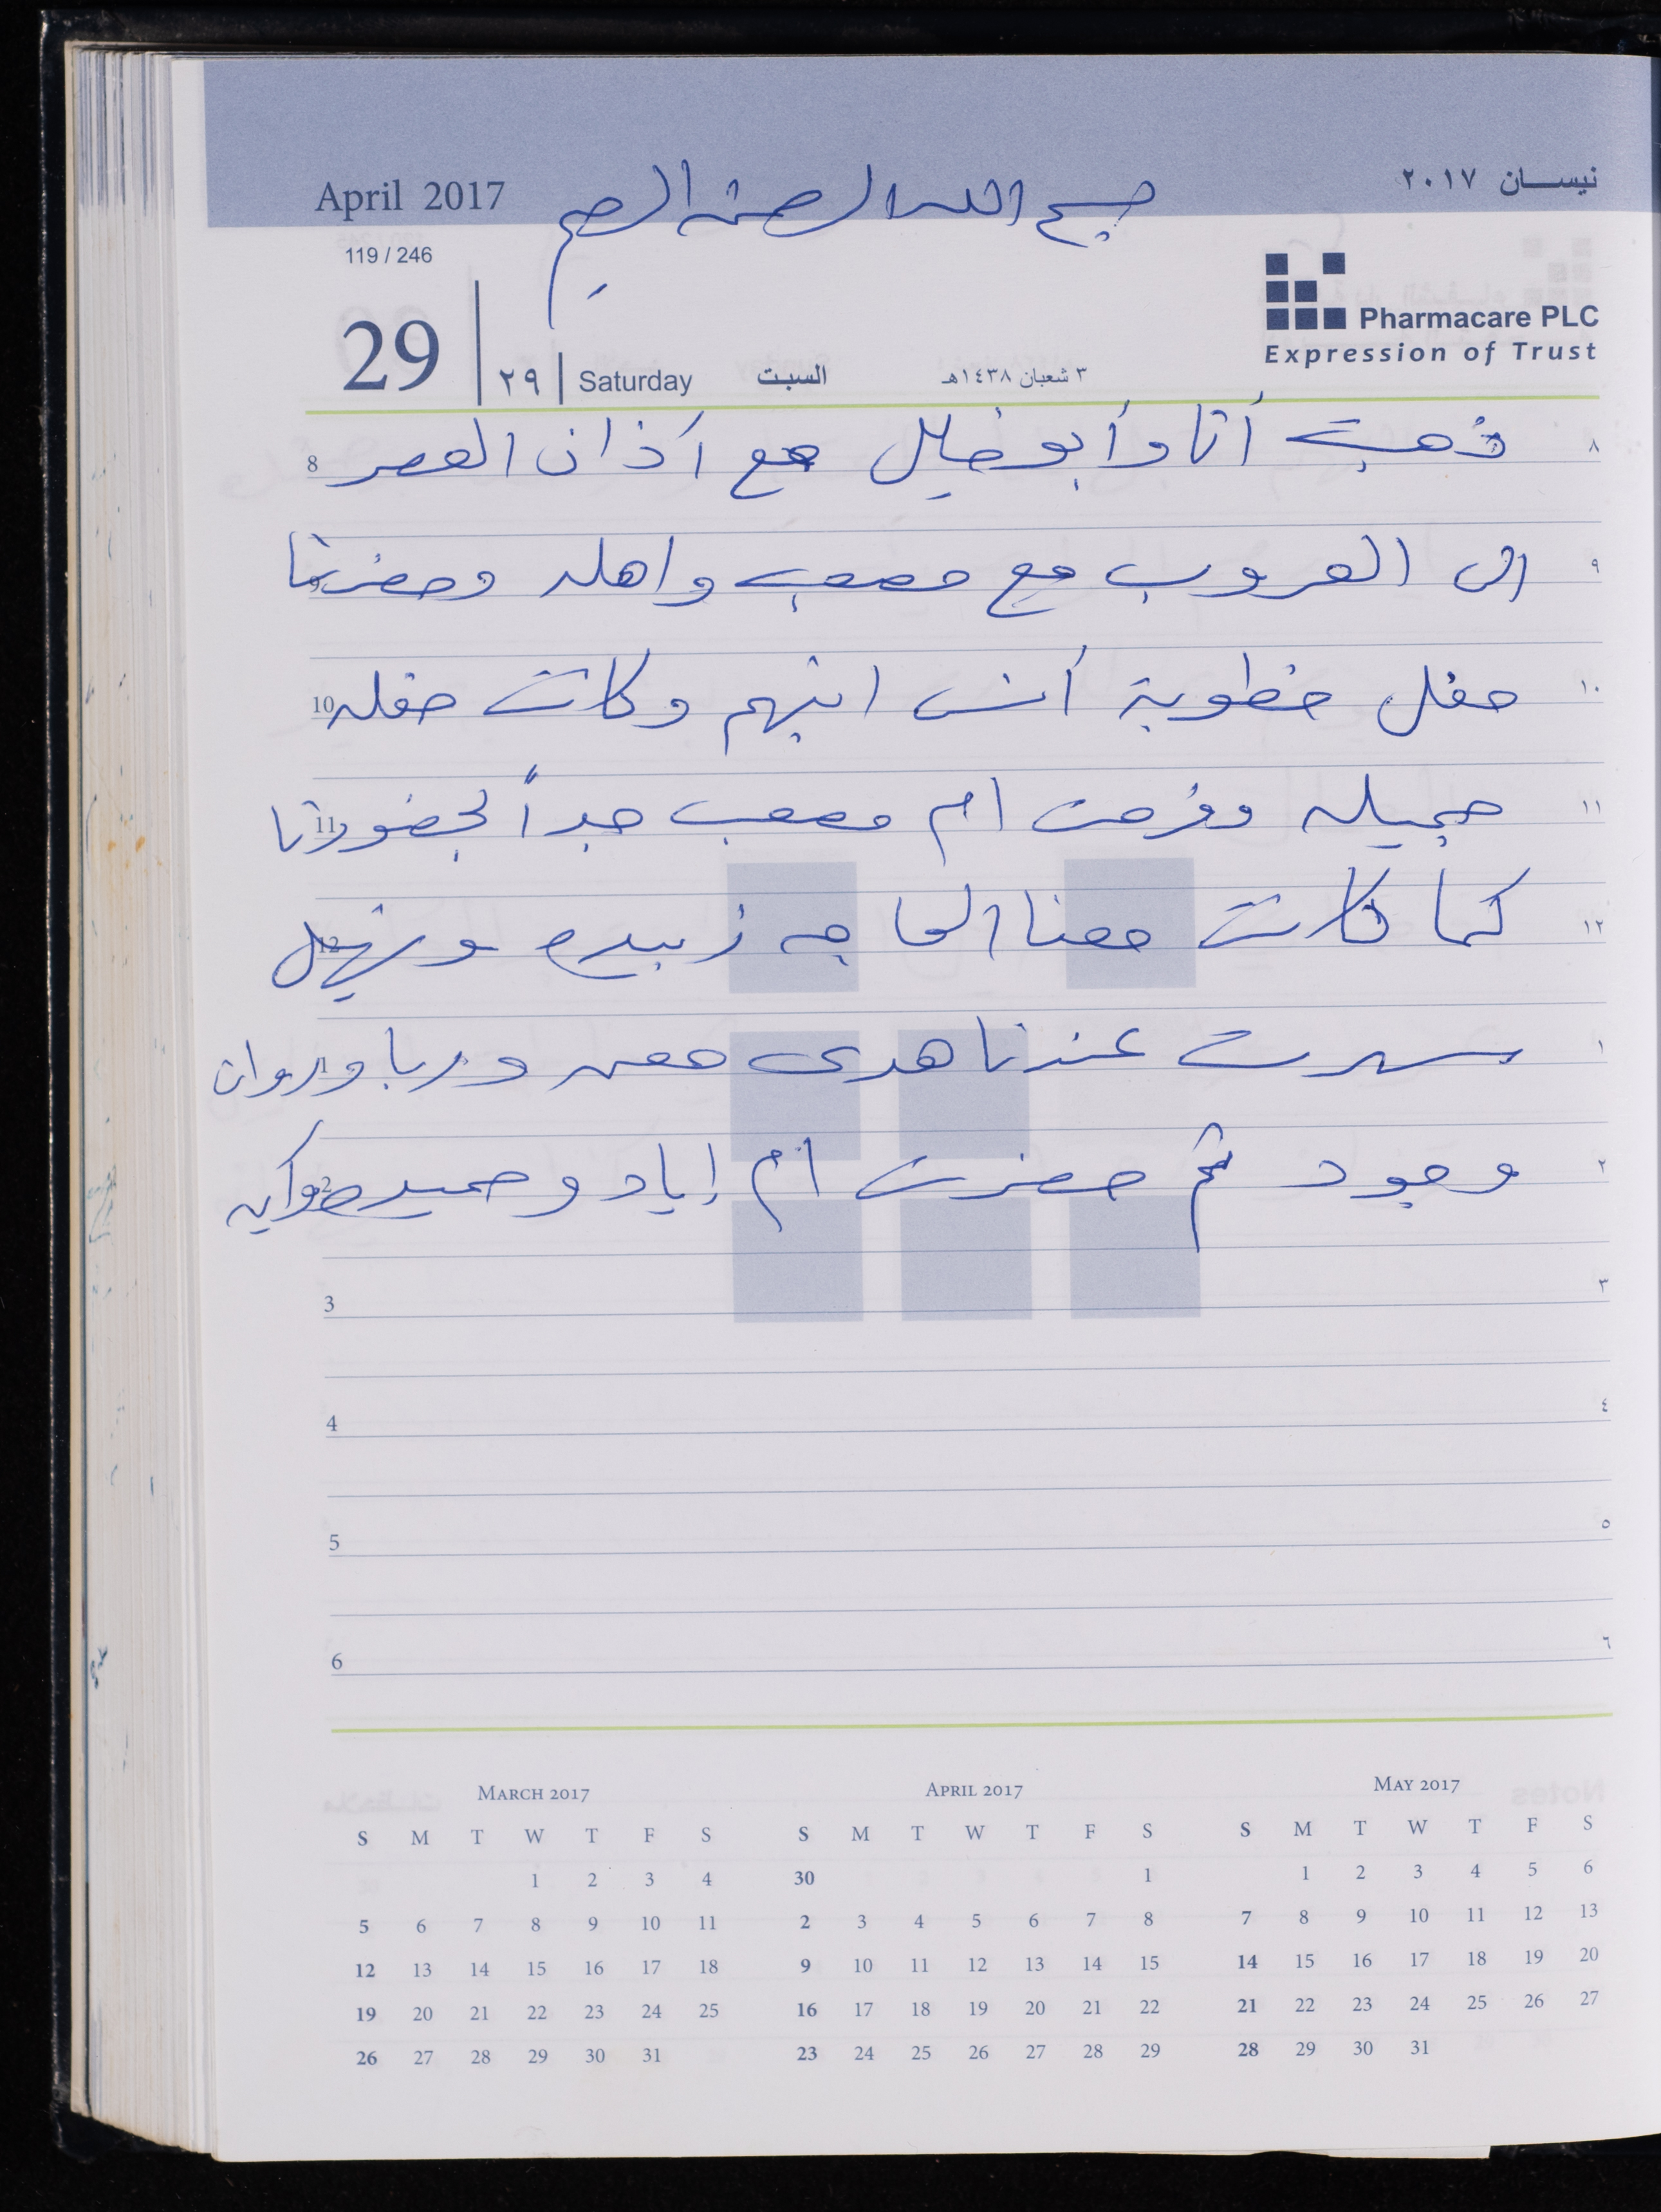 نيسان ٢٠١٧
April 2017
بسم الله الرحمن الرحيم
119 / 246
Pharmacare PLC
Expression of Trust
29 | ٢٩ | Saturday السبت ٣ شعبان ١٤٣٨هـ
8 ذهبت أنا وأبو خليل مع أذان العصر ٨
9 الى العروب مع مصعب واهله وحضرنا ٩
10 حفل خطوبة أنس ابنهم وكانت حفله ١٠
11 جميله وفرحت ام مصعب جداً لحضورنا ١١
12 كما كانت معنا الحاجه زبيده ١٢
1 سهرت عندنا هدى معن وربا وروان ١
2 وجود ثم حضرت ام إياد وحميده وآيه ٢
3 ٣
4 ٤
5 ٥
6 ٦
March 2017
S M T W T F S
1 2 3 4
5 6 7 8 9 10 11
12 13 14 15 16 17 18
19 20 21 22 23 24 25
26 27 28 29 30 31
April 2017
S M T W T F S
30 1
2 3 4 5 6 7 8
9 10 11 12 13 14 15
16 17 18 19 20 21 22
23 24 25 26 27 28 29
May 2017
S M T W T F S
1 2 3 4 5 6
7 8 9 10 11 12 13
14 15 16 17 18 19 20
21 22 23 24 25 26 27
28 29 30 31